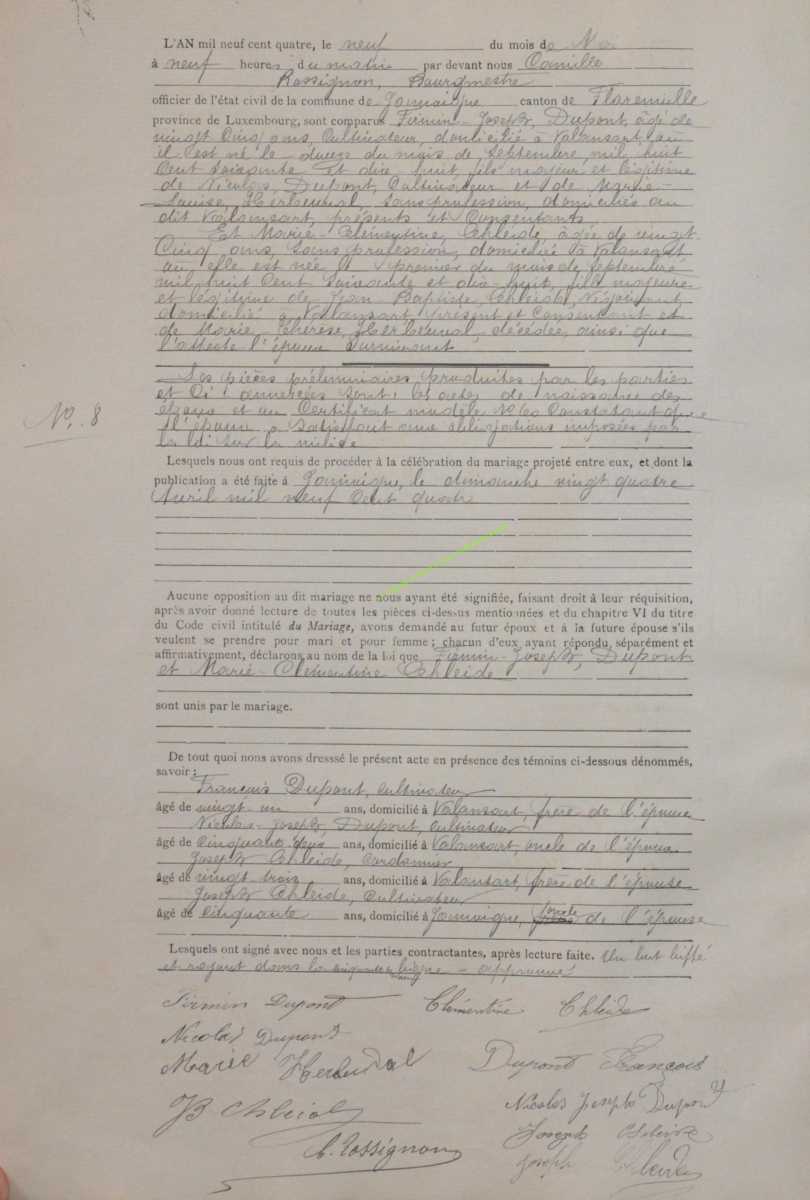 L'AN mil neuf cent quatre, le neuf du mois de Mai
à neuf heures du matin par devant nous Camille
Rossignon, Bourgmestre
officier de l'état civil de la commune de Jamoigne canton de Florenville
province de Luxembourg, sont comparus Firmin-Joseph, Dupont, âgé de
vingt cinq ans, Cultivateur, domicilié à Valansart, où
il est né le douze du mois de Septembre, mil huit
cent soixante et dix huit, fils majeur et légitime
de Nicolas, Dupont, Cultivateur et de Marie-
Louise, Herbeuval, sans profession, domiciliés au
dit Valansart, présents et consentants.
Et Marie-Clémentine, Chleide, âgée de vingt
cinq ans, sans profession, domiciliée à Valansart
où elle est née le premier du mois de Septembre
mil huit cent soixante et dix-huit, fille majeure
et légitime de Jean Baptiste, Chleide, Négociant
domicilié à Valansart, présent et consentant et
de Marie, Thérèse, Herbeuval, décédée, ainsi que
l'atteste l'époux survivant
Les pièces préliminaires produites par les parties
et ci-annexées sont: les actes de naissance des
époux et un certificat modèle No 60 constatant que
l'époux a satisfait aux obligations imposées par
la loi sur la milice
No. 8
Lesquels nous ont requis de procéder à la célébration du mariage projeté entre eux, et dont la
publication a été faite à Jamoigne, le dimanche vingt quatre
Avril mil neuf cent quatre
Aucune opposition au dit mariage ne nous ayant été signifiée, faisant droit à leur réquisition,
après avoir donné lecture de toutes les pièces ci-dessus mentionnées et du chapitre VI du titre
du Code civil intitulé du Mariage, avons demandé au futur époux et à la future épouse s'ils
veulent se prendre pour mari et pour femme; chacun d'eux ayant répondu séparément et
affirmativement, déclarons au nom de la loi que Firmin-Joseph, Dupont
et Marie-Clémentine Chleide
sont unis par le mariage.
De tout quoi nons avons dresssé le présent acte en présence des témoins ci-dessous dénommés,
savoir:
François Dupont, Cultivateur
âgé de vingt-un ans, domicilié à Valansart, frère de l'époux
Nicolas-Joseph, Dupont, Cultivateur
âgé de cinquante deux ans, domicilié à Valansart, oncle de l'époux
Joseph Chleide, Cordonnier
âgé de vingt trois ans, domicilié à Valansart, frère de l'épouse
Joseph Chleide, Cultivateur
âgé de cinquante ans, domicilié à Jamoigne, oncle de l'épouse
Lesquels ont signé avec nous et les parties contractantes, après lecture faite. Un mot biffé
et regard dans la ligne - approuvé
Firmin Dupont Clémentine Chleide
Nicolas Dupont
Marie Herbeuval Dupont François
JB Chleide Nicolas Joseph Dupont
Joseph Chleide
C. Rossignon
Joseph Chleide